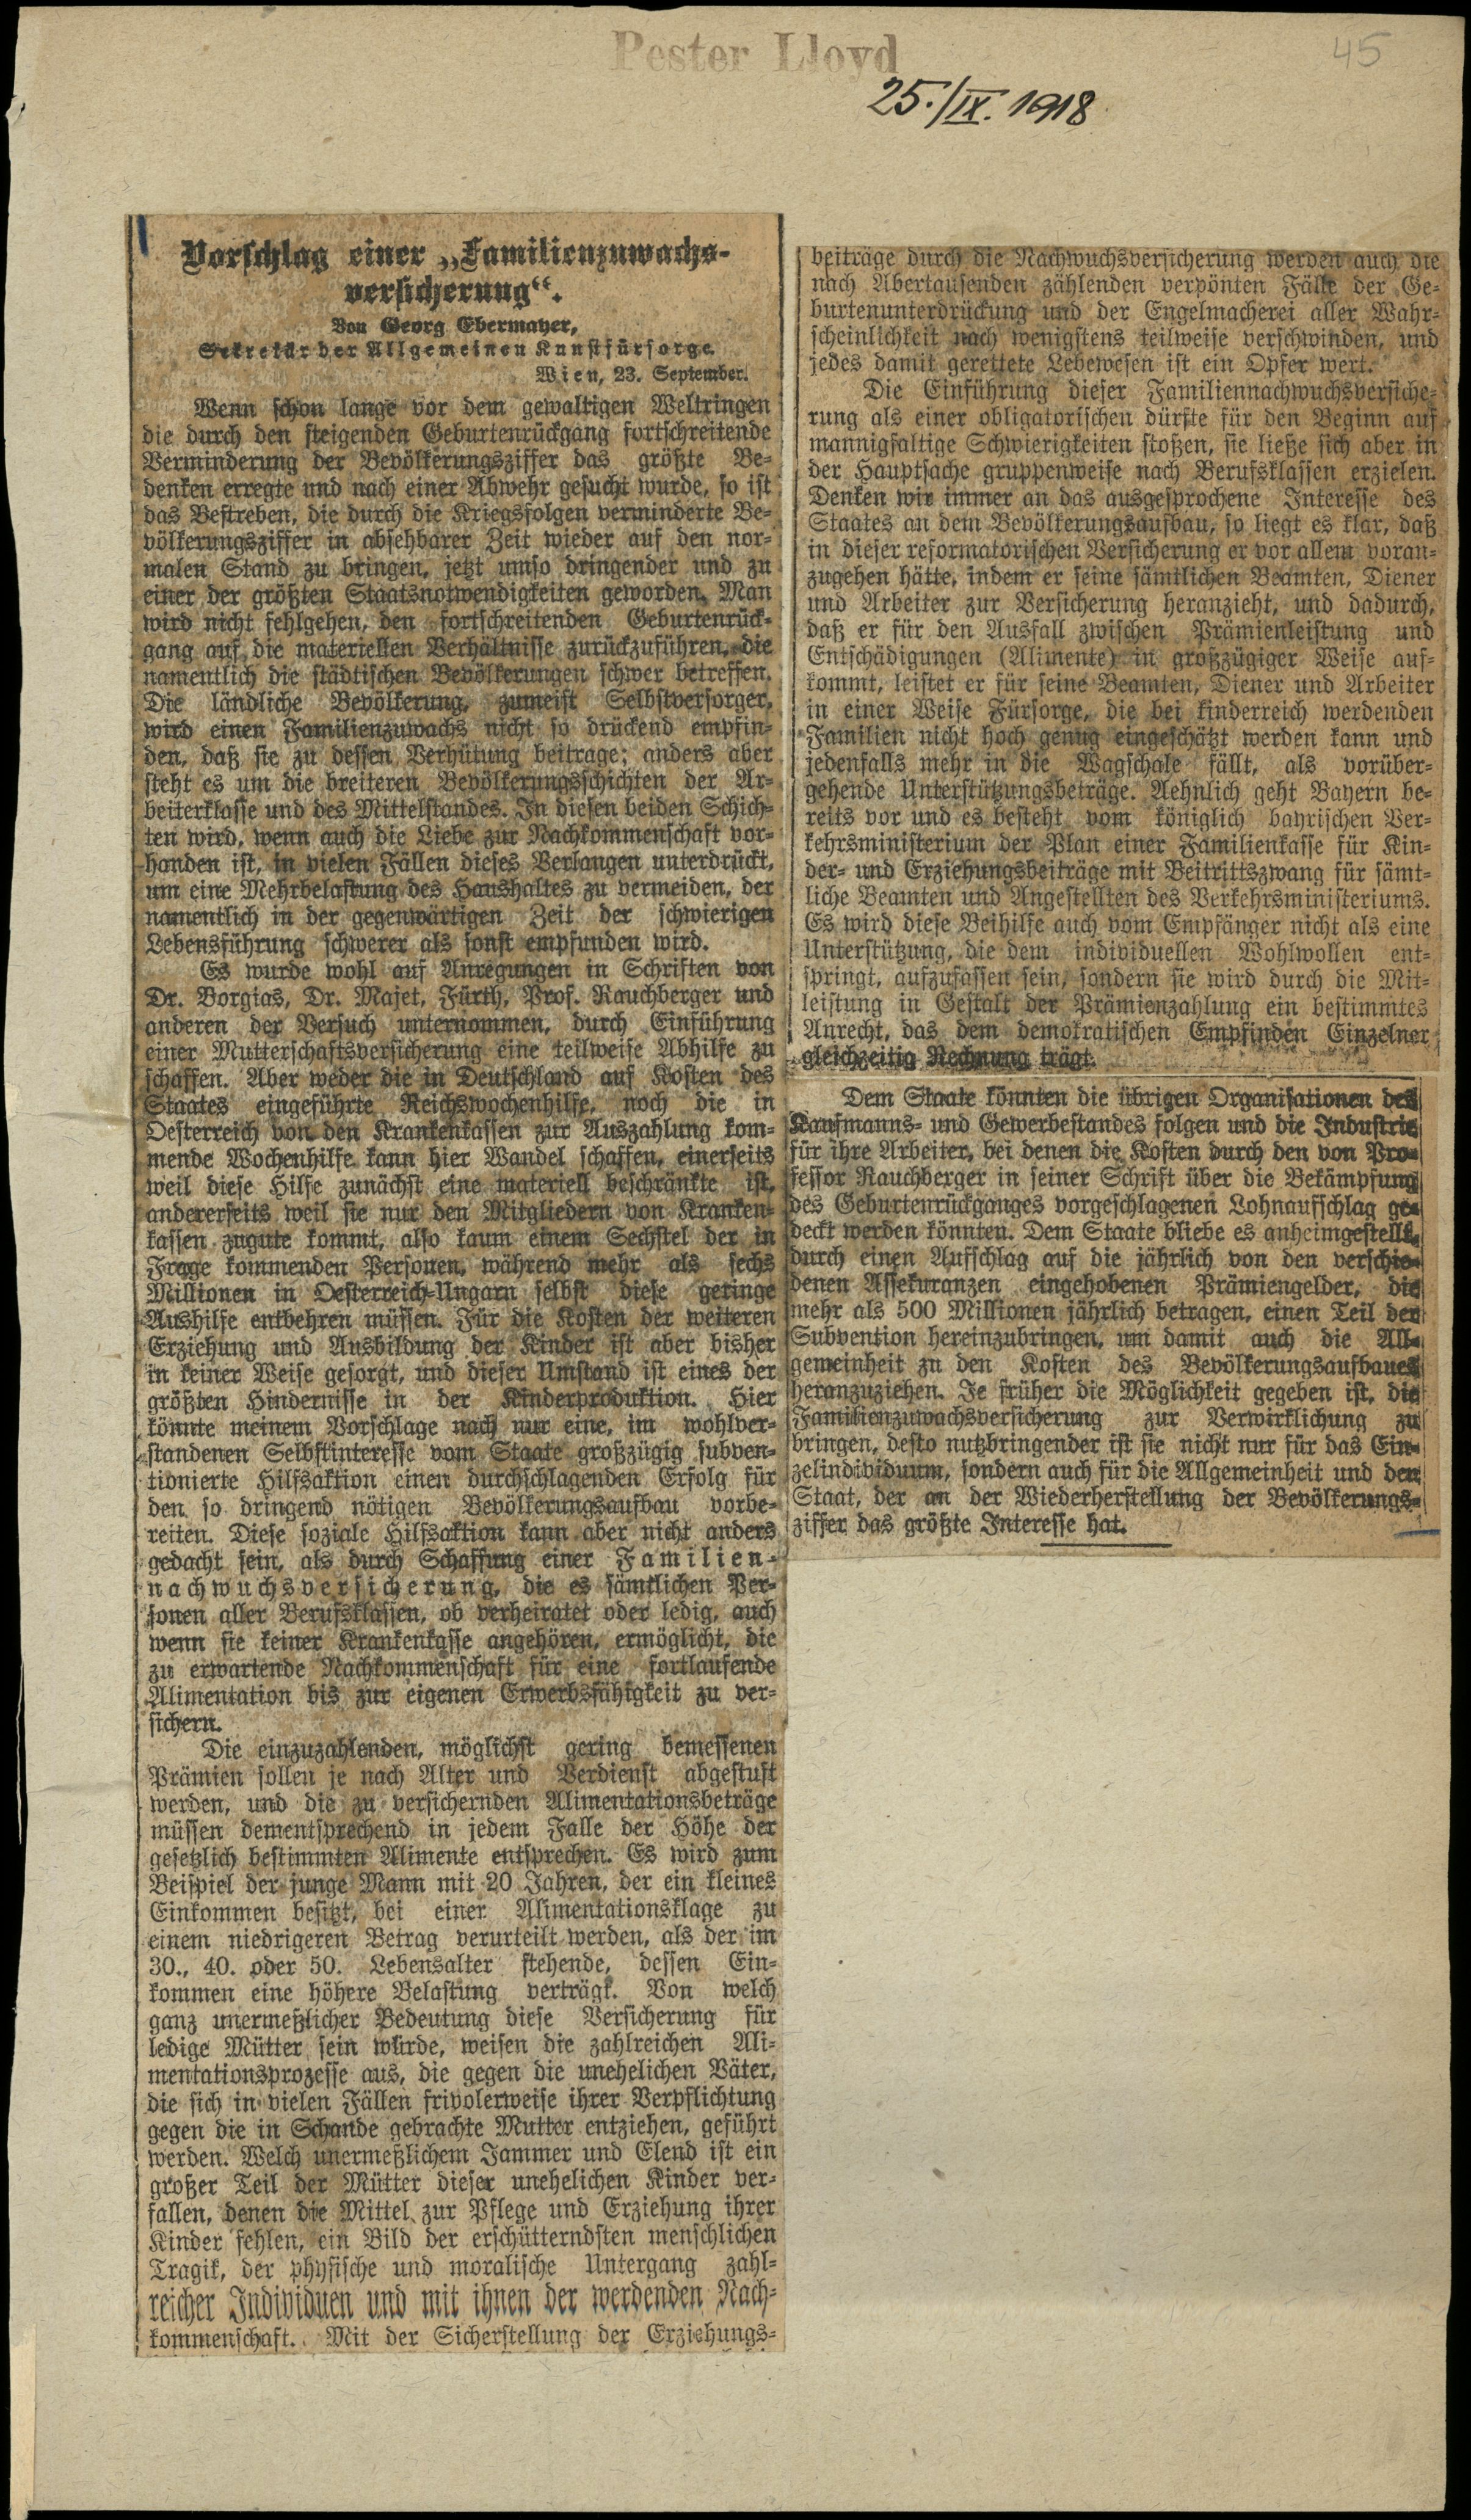 Pester Lloyd
45
25./IX. 1918
Vorschlag einer „Familienzuwachs-
versicherung“.
Von Georg Ebermayer,
Sekretär der Allgemeinen Kunstfürsorge.
Wien, 23. September.
Wenn schon lange vor dem gewaltigen Weltringen
die durch den steigenden Geburtenrückgang fortschreitende
Verminderung der Bevölkerungsziffer das größte Be-
denken erregte und nach einer Abwehr gesucht wurde, so ist
das Bestreben, die durch die Kriegsfolgen verminderte Be-
völkerungsziffer in absehbarer Zeit wieder auf den nor-
malen Stand zu bringen, jetzt umso dringender und zu
einer der größten Staatsnotwendigkeiten geworden. Man
wird nicht fehlgehen, den fortschreitenden Geburtenrück-
gang auf die materiellen Verhältnisse zurückzuführen, die
namentlich die städtischen Bevölkerungen schwer betreffen.
Die ländliche Bevölkerung, zumeist Selbstversorger,
wird einen Familienzuwachs nicht so drückend empfin-
den, daß sie zu dessen Verhütung beitrage; anders aber
steht es um die breiteren Bevölkerungsschichten der Ar-
beiterklasse und des Mittelstandes. In diesen beiden Schich-
ten wird, wenn auch die Liebe zur Nachkommenschaft vor-
handen ist, in vielen Fällen dieses Verlangen unterdrückt,
um eine Mehrbelastung des Haushaltes zu vermeiden, der
namentlich in der gegenwärtigen Zeit der schwierigen
Lebensführung schwerer als sonst empfunden wird.
Es wurde wohl auf Anregungen in Schriften von
Dr. Borgias, Dr. Majet, Fürth, Prof. Rauchberger und
anderen der Versuch unternommen, durch Einführung
einer Mutterschaftsversicherung eine teilweise Abhilfe zu
schaffen. Aber weder die in Deutschland auf Kosten des
Staates eingeführte Reichswochenhilfe, noch die in
Oesterreich von den Krankenkassen zur Auszahlung kom-
mende Wochenhilfe kann hier Wandel schaffen, einerseits
weil diese Hilfe zunächst eine materiell beschränkte ist,
andererseits weil sie nur den Mitgliedern von Kranken-
kassen zugute kommt, also kaum einem Sechstel der in
Frage kommenden Personen, während mehr als sechs
Millionen in Oesterreich-Ungarn selbst diese geringe
Aushilfe entbehren müssen. Für die Kosten der weiteren
Erziehung und Ausbildung der Kinder ist aber bisher
in keiner Weise gesorgt, und dieser Umstand ist eines der
größten Hindernisse in der Kinderproduktion. Hier
könnte meinem Vorschlage nach nur eine, im wohlver-
standenen Selbstinteresse vom Staate großzügig subven-
tionierte Hilfsaktion einen durchschlagenden Erfolg für
den so dringend nötigen Bevölkerungsaufbau vorbe-
reiten. Diese soziale Hilfsaktion kann aber nicht anders
gedacht sein, als durch Schaffung einer Familien-
nachwuchsversicherung, die es sämtlichen Per-
sonen aller Berufsklassen, ob verheiratet oder ledig, auch
wenn sie keiner Krankenkasse angehören, ermöglicht, die
zu erwartende Nachkommenschaft für eine fortlaufende
Alimentation bis zur eigenen Erwerbsfähigkeit zu ver-
sichern.
Die einzuzahlenden, möglichst gering bemessenen
Prämien sollen je nach Alter und Verdienst abgestuft
werden, und die zu versichernden Alimentationsbeträge
müssen dementsprechend in jedem Falle der Höhe der
gesetzlich bestimmten Alimente entsprechen. Es wird zum
Beispiel der junge Mann mit 20 Jahren, der ein kleines
Einkommen besitzt, bei einer Alimentationsklage zu
einem niedrigeren Betrag verurteilt werden, als der im
30., 40. oder 50. Lebensalter stehende, dessen Ein-
kommen eine höhere Belastung verträgt. Von welch
ganz unermeßlicher Bedeutung diese Versicherung für
ledige Mütter sein würde, weisen die zahlreichen Ali-
mentationsprozesse aus, die gegen die unehelichen Väter,
die sich in vielen Fällen frivolerweise ihrer Verpflichtung
gegen die in Schande gebrachte Mutter entziehen, geführt
werden. Welch unermeßlichem Jammer und Elend ist ein
großer Teil der Mütter dieser unehelichen Kinder ver-
fallen, denen die Mittel zur Pflege und Erziehung ihrer
Kinder fehlen, ein Bild der erschütterndsten menschlichen
Tragik, der physische und moralische Untergang zahl-
reicher Individuen und mit ihnen der werdenden Nach-
kommenschaft. Mit der Sicherstellung der Erziehungs-
beiträge durch die Nachwuchsversicherung werden auch die
nach Abertausenden zählenden verpönten Fälle der Ge-
burtenunterdrückung und der Engelmacherei aller Wahr-
scheinlichkeit nach wenigstens teilweise verschwinden, und
jedes damit gerettete Lebewesen ist ein Opfer wert.
Die Einführung dieser Familiennachwuchsversiche-
rung als einer obligatorischen dürfte für den Beginn auf
mannigfaltige Schwierigkeiten stoßen, sie ließe sich aber in
der Hauptsache gruppenweise nach Berufsklassen erzielen.
Denken wir immer an das ausgesprochene Interesse des
Staates an dem Bevölkerungsaufbau, so liegt es klar, daß
in dieser reformatorischen Versicherung er vor allem voran-
zugehen hätte, indem er seine sämtlichen Beamten, Diener
und Arbeiter zur Versicherung heranzieht, und dadurch,
daß er für den Ausfall zwischen Prämienleistung und
Entschädigungen (Alimente) in großzügiger Weise auf-
kommt, leistet er für seine Beamten, Diener und Arbeiter
in einer Weise Fürsorge, die bei kinderreich werdenden
Familien nicht hoch genug eingeschätzt werden kann und
jedenfalls mehr in die Wagschale fällt, als vorüber-
gehende Unterstützungsbeträge. Aehnlich geht Bayern be-
reits vor und es besteht vom königlich bayrischen Ver-
kehrsministerium der Plan einer Familienkasse für Kin-
der- und Erziehungsbeiträge mit Beitrittszwang für sämt-
liche Beamten und Angestellten des Verkehrsministeriums.
Es wird diese Beihilfe auch vom Empfänger nicht als eine
Unterstützung, die dem individuellen Wohlwollen ent-
springt, aufzufassen sein, sondern sie wird durch die Mit-
leistung in Gestalt der Prämienzahlung ein bestimmtes
Anrecht, das dem demokratischen Empfinden Einzelner
gleichzeitig Rechnung trägt.
Dem Staate könnten die übrigen Organisationen des
Kaufmanns- und Gewerbestandes folgen und die Industrie
für ihre Arbeiter, bei denen die Kosten durch den von Pro-
fessor Rauchberger in seiner Schrift über die Bekämpfung
des Geburtenrückganges vorgeschlagenen Lohnaufschlag ge-
deckt werden könnten. Dem Staate bliebe es anheimgestellt,
durch einen Aufschlag auf die jährlich von den verschie-
denen Assekuranzen eingehobenen Prämiengelder, die
mehr als 500 Millionen jährlich betragen, einen Teil der
Subvention hereinzubringen, um damit auch die All-
gemeinheit zu den Kosten des Bevölkerungsaufbaues
heranzuziehen. Je früher die Möglichkeit gegeben ist, die
Familienzuwachsversicherung zur Verwirklichung zu
bringen, desto nutzbringender ist sie nicht nur für das Ein-
zelindividuum, sondern auch für die Allgemeinheit und den
Staat, der an der Wiederherstellung der Bevölkerungs-
ziffer das größte Interesse hat.